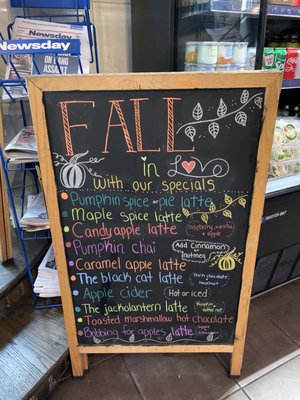 Newsday
Newsday
FALL
in Love
with our specials
Pumpkin spice - pie latte
Maple spice latte
Candy apple latte
(raspberry, vanilla + apple
Pumpkin chai
Add Cinnamon or nutmeg
Caramel apple latte
The black cat latte
Dark chocolate + hazelnut
Apple cider
(Hot or iced)
The jackolantern latte
Toasted marshmallow hot chocolate
Bobbing for apples latte